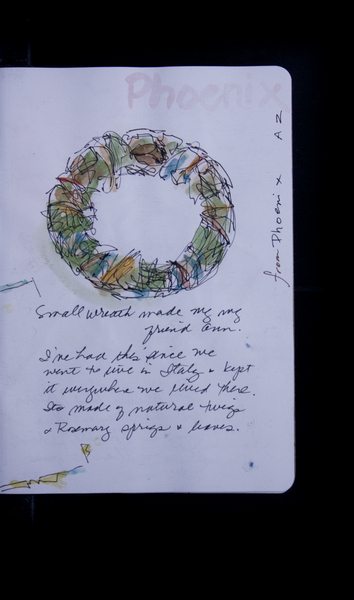 Phoenix
from Phoenix AZ
Small wreath made by my
friend Ann.
I've had this since we
went to live in Italy & kept
it everywhere we lived there.
Its made of natural twigs
& Rosemary sprigs & leaves.